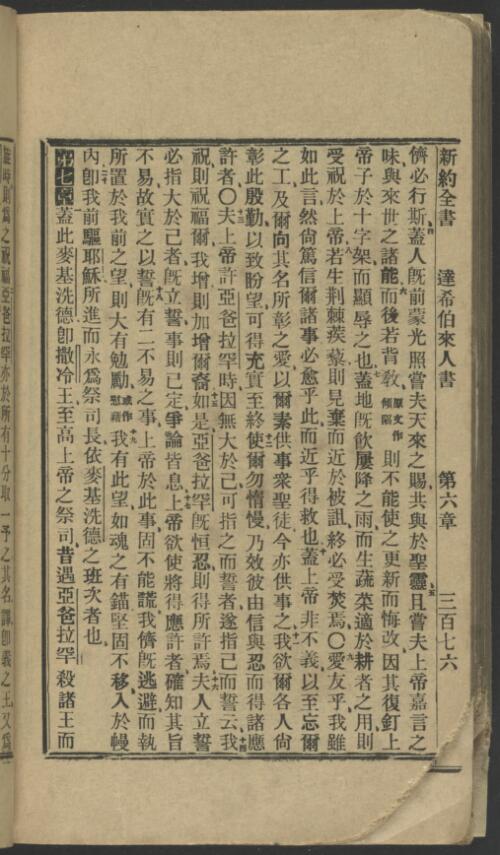 新約全書　達希伯來人書　第六章　三百七六
儕必行斯四蓋人旣前蒙光照嘗夫天來之賜共與於聖靈五且嘗夫上帝嘉言之
味與來世之諸能六而後若背敎原文作傾隕則不能使之更新而悔改因其復釘上
帝子於十字架而顯辱之也七蓋地旣飲屢降之雨而生蔬菜適於耕者之用則
受祝於上帝八若生荆棘蒺藜則見棄而近於被詛終必受焚焉〇九愛友乎我雖
如此言然尙篤信爾諸事必愈乎此而近乎得救也十蓋上帝非不義以至忘爾
之工及爾向其名所彰之愛以爾素供事衆聖徒今亦供事之十一我欲爾各人尙
彰此殷勤以致盼望可得充實至終十二使爾勿惰慢乃效彼由信與忍而得諸應
許者〇十三夫上帝許亞爸拉罕時因無大於己可指之而誓者遂指己而誓云十四我
祝則祝福爾我增則加增爾裔十五如是亞爸拉罕旣恒忍則得所許焉十六夫人立誓
必指大於己者旣立誓事則已定爭論皆息十七上帝欲使將得應許者確知其旨
不易故實之以誓十八旣有二不易之事上帝於此事固不能謊我儕旣逃避而執
所置於我前之望則大有勉勵或作慰藉十九我有此望如魂之有錨堅固不移入於幔
內二十卽我前驅耶穌所進而永爲祭司長依麥基洗德之班次者也
第七章一蓋此麥基洗德卽撒冷王至高上帝之祭司昔遇亞爸拉罕殺諸王而
旋時則爲之祝福二亞爸拉罕亦於所有十分取一予之其名譯卽義之王又爲